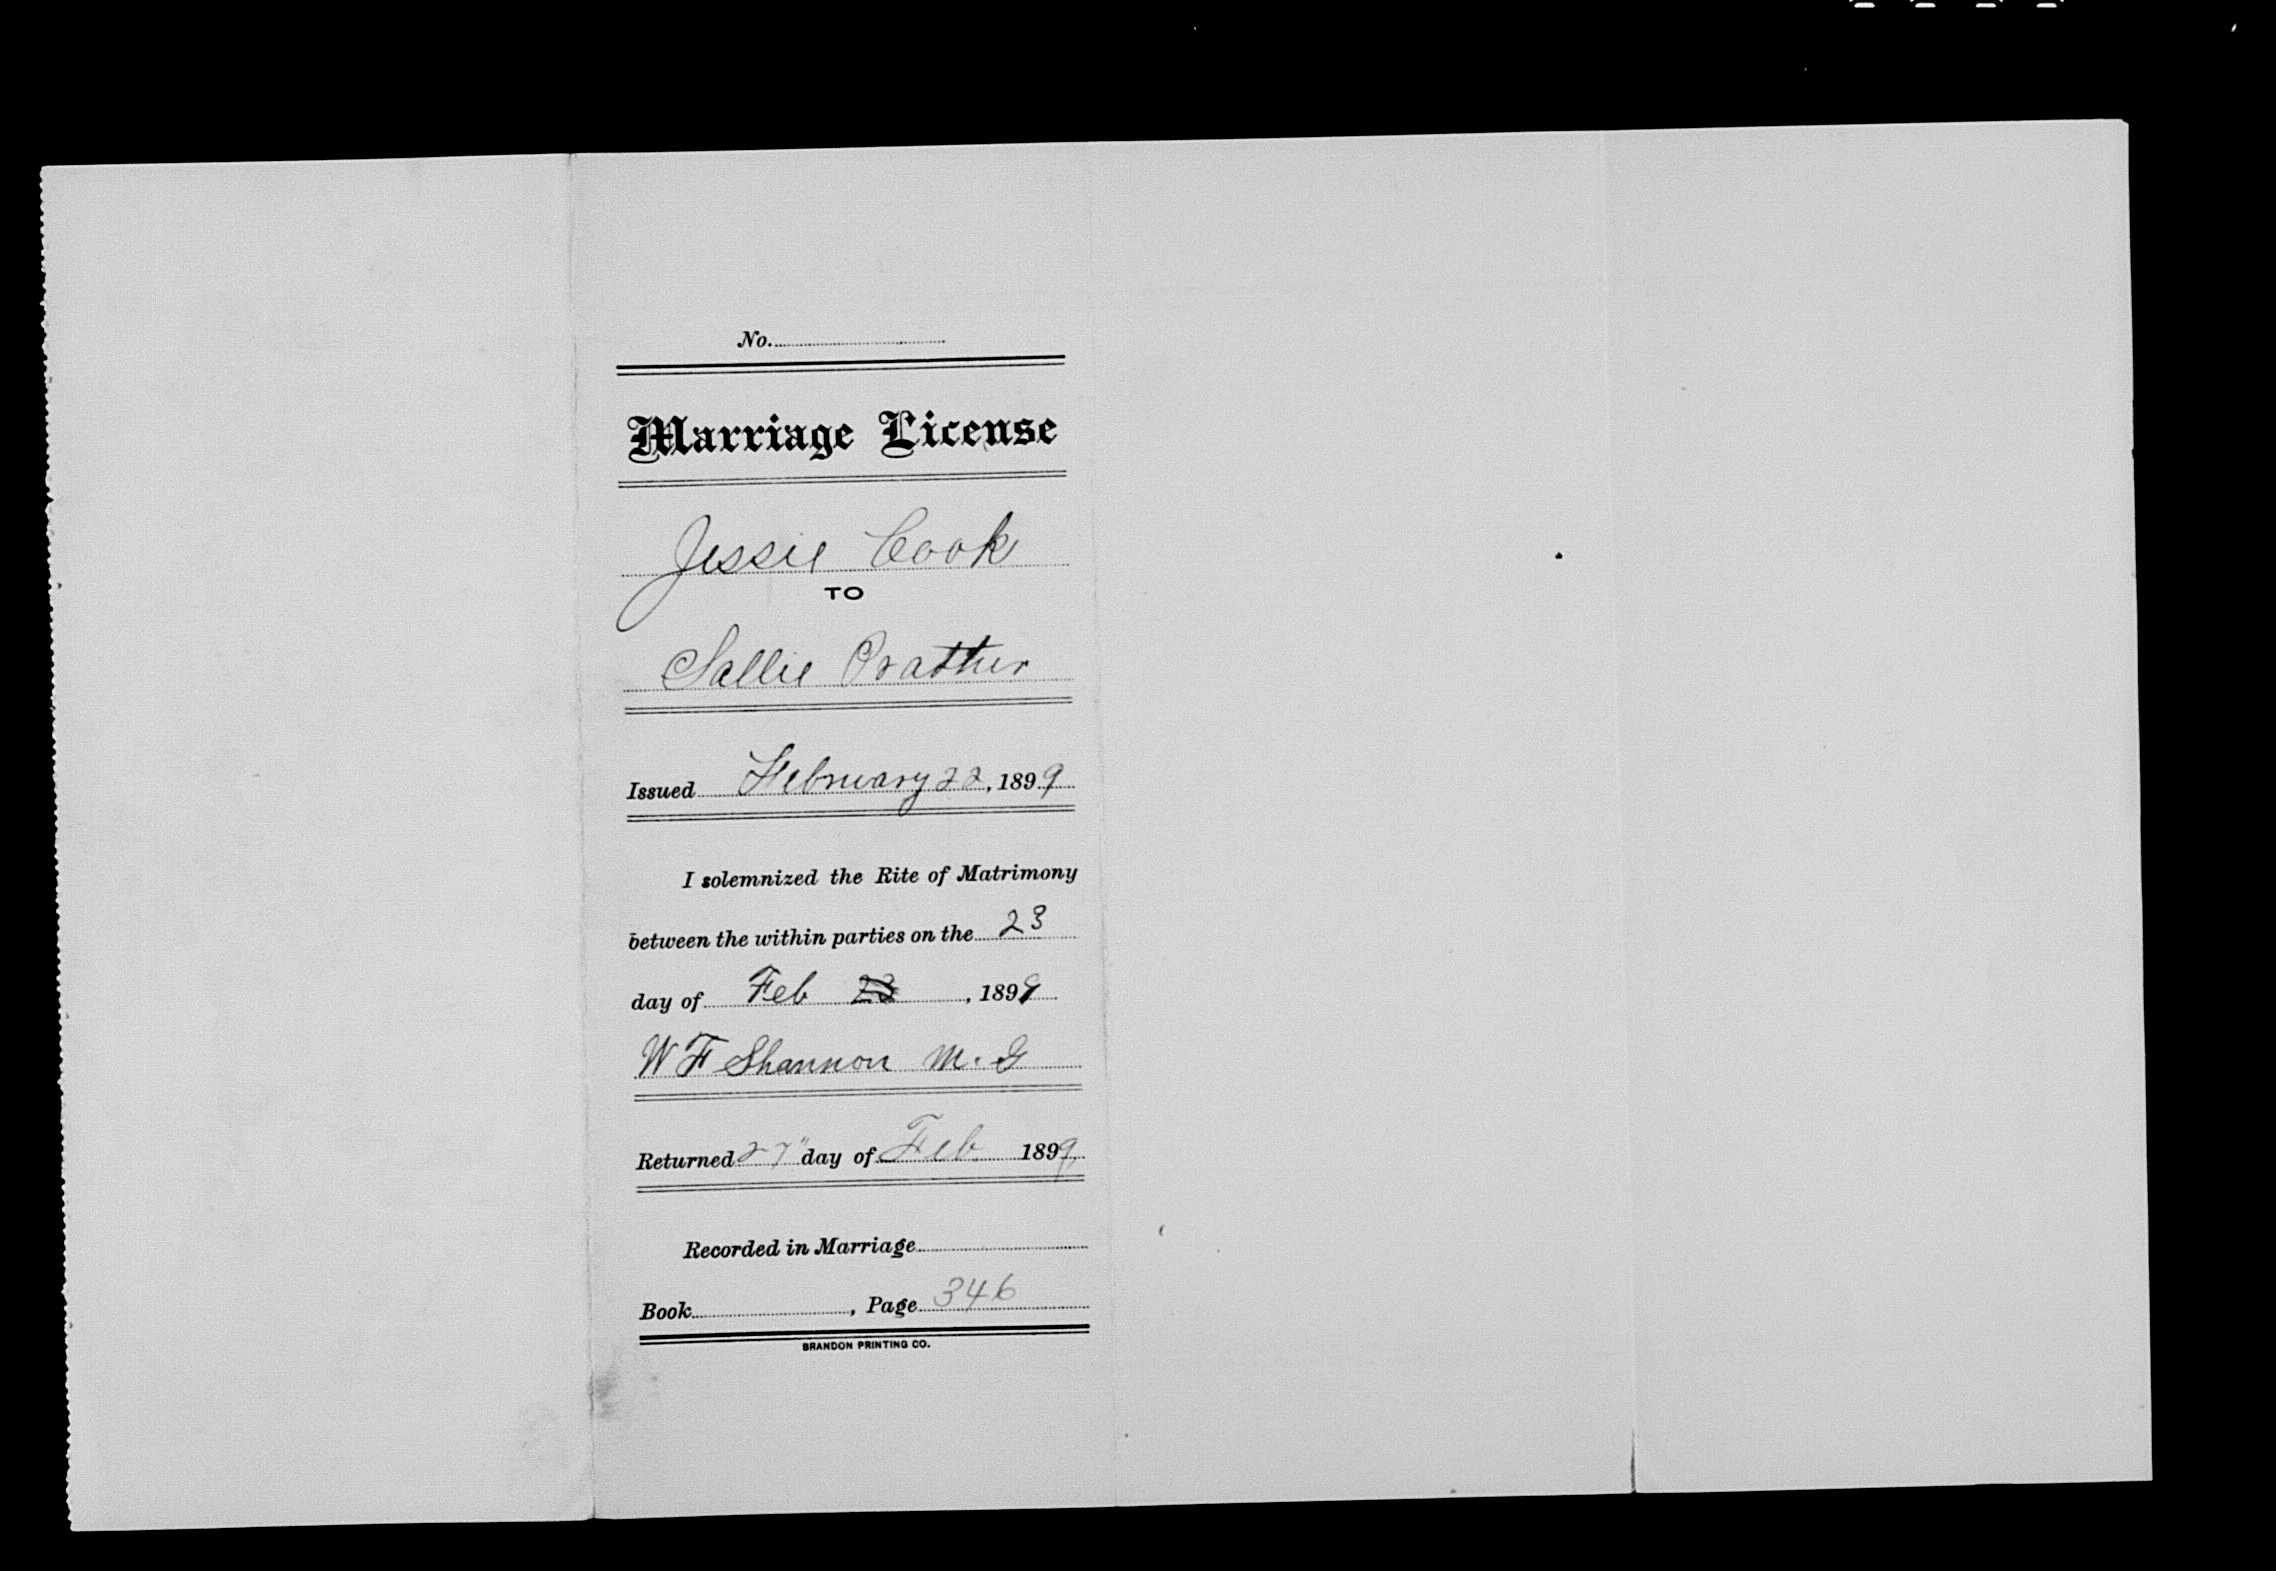 No.
Marriage License
Jessie Cook
TO
Sallie Prather
Issued February 22, 1899
I solemnized the Rite of Matrimony
between the within parties on the 23
day of Feb 23, 1899
W F Shannon M. G
Returned 27" day of Feb 1899
Recorded in Marriage
Book, Page 346
BRANDON PRINTING CO.